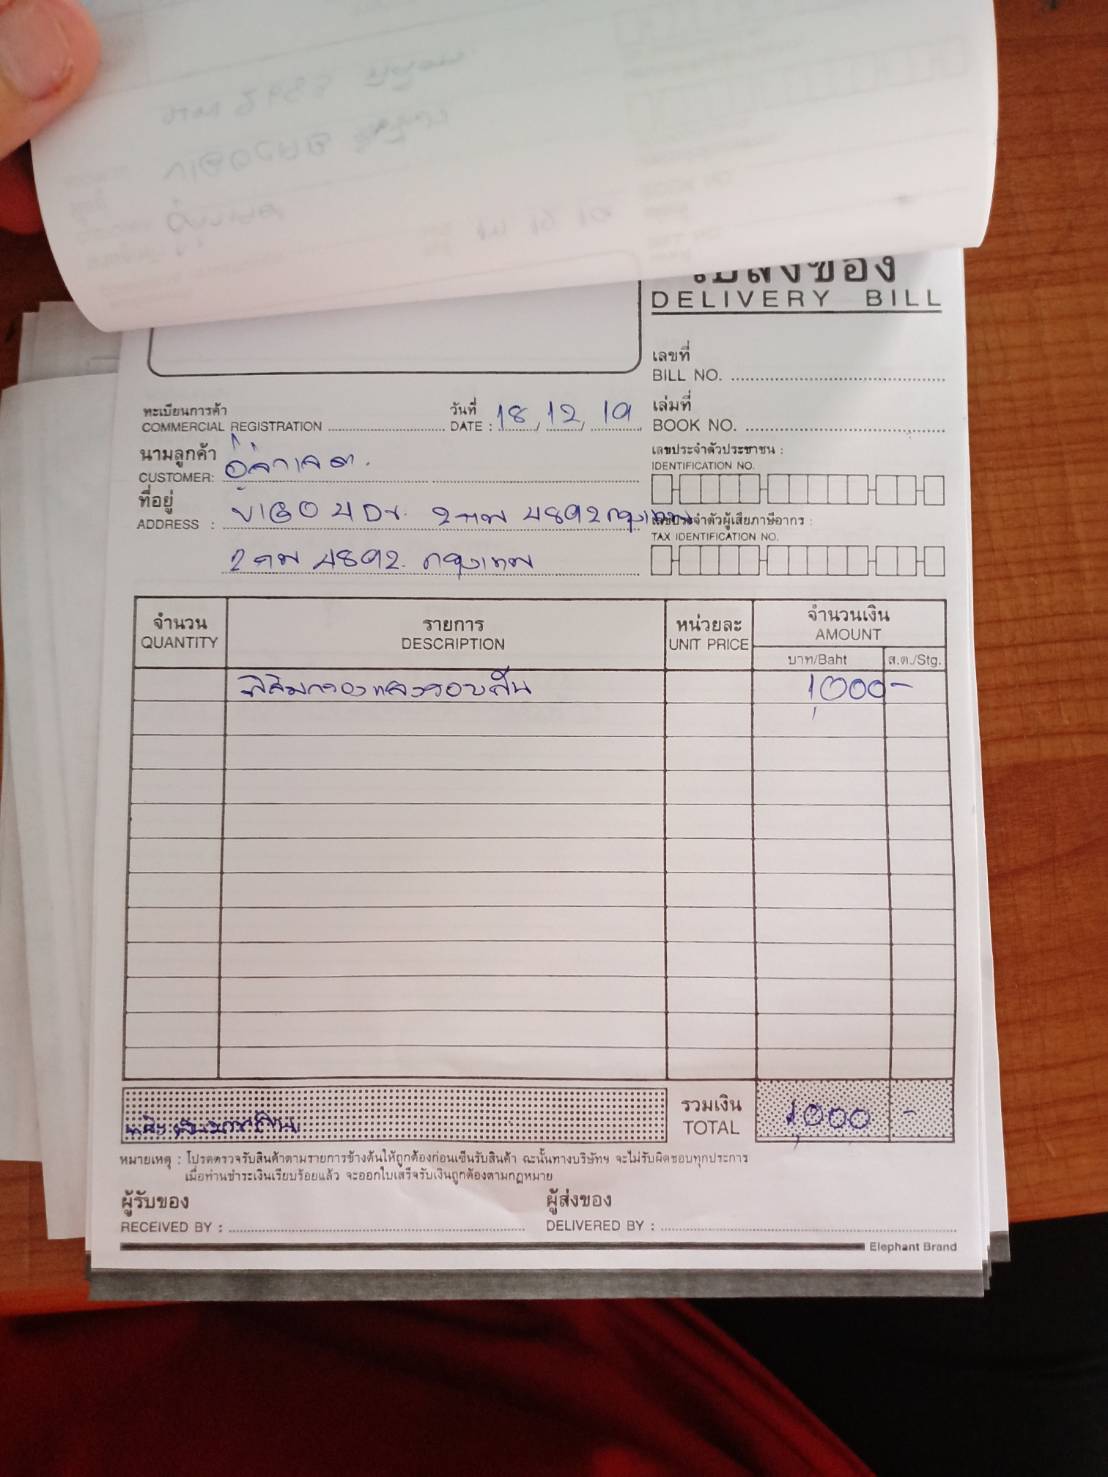 ใบส่งของ
DELIVERY BILL
เลขที่
BILL NO.
ทะเบียนการค้า
COMMERCIAL REGISTRATION
วันที่
DATE : 18, 12, 19
เล่มที่
BOOK NO.
นามลูกค้า
CUSTOMER:
เลขประจำตัวประชาชน :
IDENTIFICATION NO.
ที่อยู่
ADDRESS : 4892 กรุงเทพ
เลขประจำตัวผู้เสียภาษีอากร :
TAX IDENTIFICATION NO.
4892. กรุงเทพ
จำนวน
QUANTITY
รายการ
DESCRIPTION
หน่วยละ
UNIT PRICE
จำนวนเงิน
AMOUNT
บาท/Baht
ส.ต./Stg.
ฟิล์มกรองแสงรอบคัน 1,000 -
รวมเงิน
TOTAL
1,000 -
หมายเหตุ : โปรดตรวจรับสินค้าตามรายการข้างต้นให้ถูกต้องก่อนเซ็นรับสินค้า ฉะนั้นทางบริษัทฯ จะไม่รับผิดชอบทุกประการ
เมื่อท่านชำระเงินเรียบร้อยแล้ว จะออกใบเสร็จรับเงินถูกต้องตามกฎหมาย
ผู้รับของ
RECEIVED BY :
ผู้ส่งของ
DELIVERED BY :
Elephant Brand